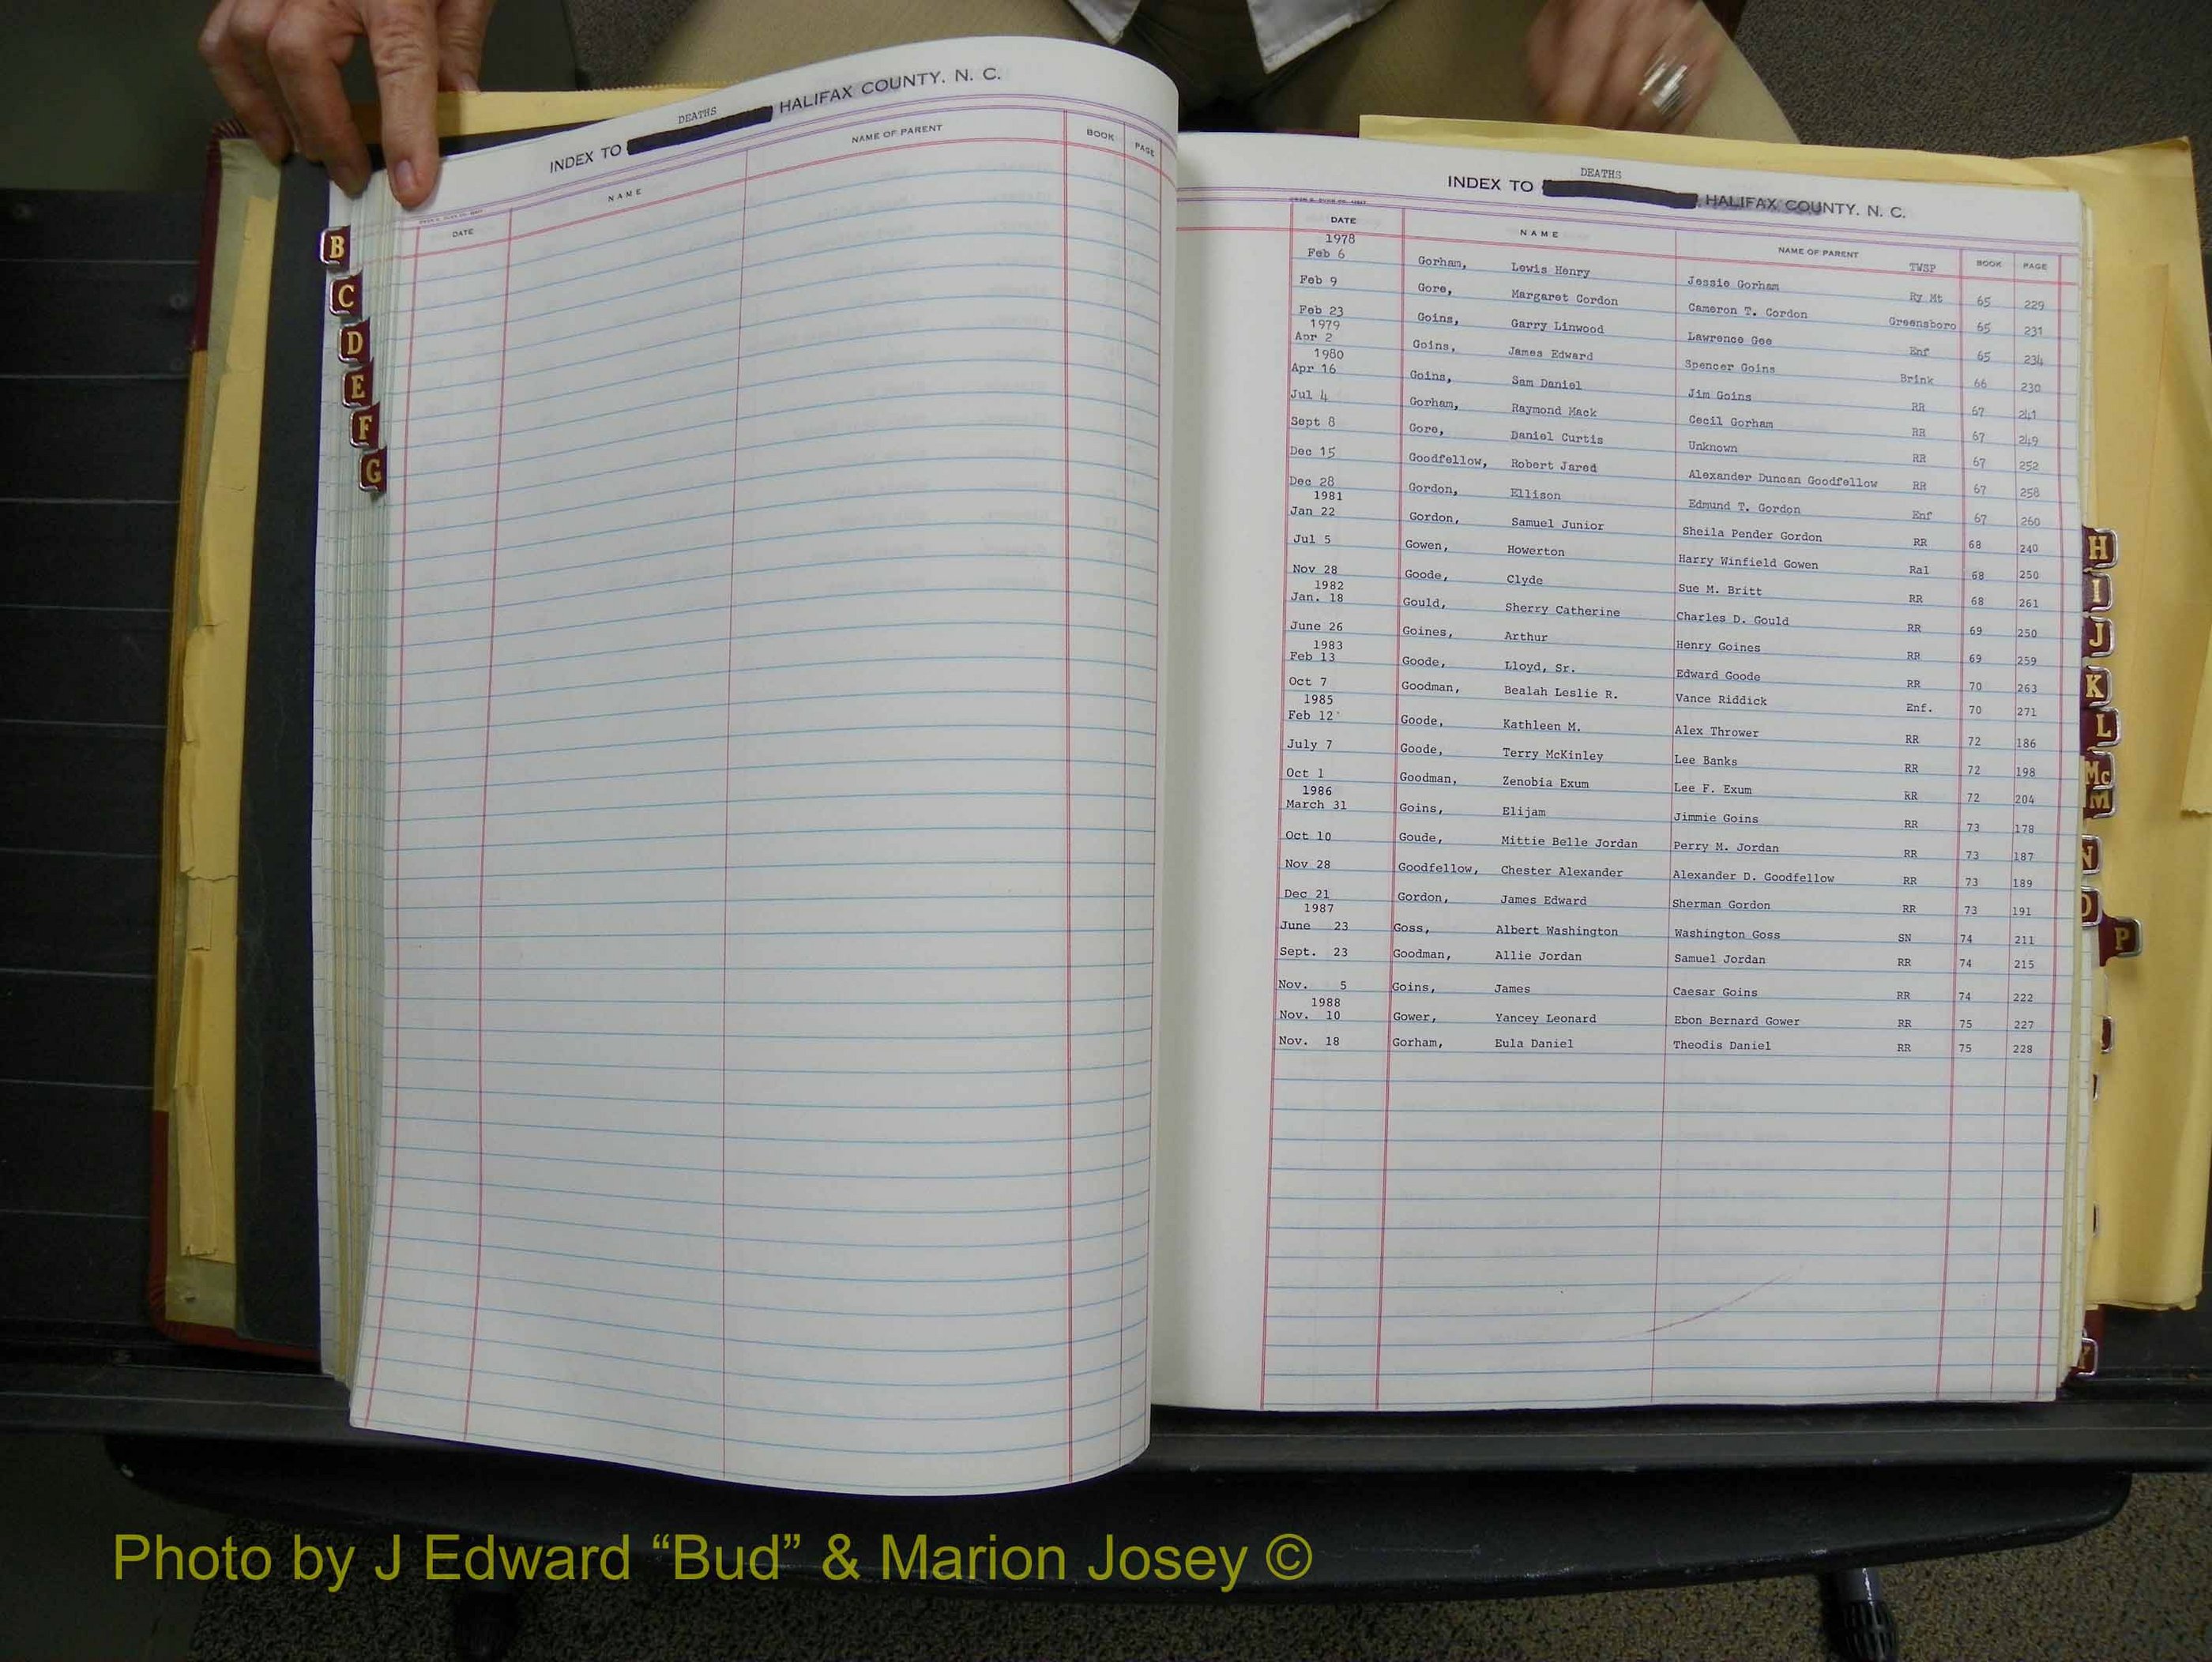 INDEX TO DEATHS HALIFAX COUNTY, N. C.
DATE NAME NAME OF PARENT BOOK PAGE
B
C
D
E
F
G
INDEX TO DEATHS HALIFAX COUNTY, N. C.
DATE NAME NAME OF PARENT TWSP BOOK PAGE
1978
Feb 6 Gorham, Lewis Henry Jessie Gorham Ry Mt 65 229
Feb 9 Gore, Margaret Cordon Cameron T. Cordon Greensboro 65 231
Feb 23 Goins, Garry Linwood Lawrence Gee Enf 65 234
1979
Apr 2 Goins, James Edward Spencer Goins Brink 66 230
1980
Apr 16 Goins, Sam Daniel Jim Goins RR 67 241
Jul 4 Gorham, Raymond Mack Cecil Gorham RR 67 249
Sept 8 Gore, Daniel Curtis Unknown RR 67 252
Dec 15 Goodfellow, Robert Jared Alexander Duncan Goodfellow RR 67 258
Dec 28 Gordon, Ellison Edmund T. Gordon Enf 67 260
1981
Jan 22 Gordon, Samuel Junior Sheila Pender Gordon RR 68 240
Jul 5 Gowen, Howerton Harry Winfield Gowen Ral 68 250
Nov 28 Goode, Clyde Sue M. Britt RR 68 261
1982
Jan. 18 Gould, Sherry Catherine Charles D. Gould RR 69 250
June 26 Goines, Arthur Henry Goines RR 69 259
1983
Feb 13 Goode, Lloyd, Sr. Edward Goode RR 70 263
Oct 7 Goodman, Bealah Leslie R. Vance Riddick Enf. 70 271
1985
Feb 12 Goode, Kathleen M. Alex Thrower RR 72 186
July 7 Goode, Terry McKinley Lee Banks RR 72 198
Oct 1 Goodman, Zenobia Exum Lee F. Exum RR 72 204
1986
March 31 Goins, Elijam Jimmie Goins RR 73 178
Oct 10 Goude, Mittie Belle Jordan Perry M. Jordan RR 73 187
Nov 28 Goodfellow, Chester Alexander Alexander D. Goodfellow RR 73 189
Dec 21 Gordon, James Edward Sherman Gordon RR 73 191
1987
June 23 Goss, Albert Washington Washington Goss SN 74 211
Sept. 23 Goodman, Allie Jordan Samuel Jordan RR 74 215
Nov. 5 Goins, James Caesar Goins RR 74 222
1988
Nov. 10 Gower, Yancey Leonard Ebon Bernard Gower RR 75 227
Nov. 18 Gorham, Eula Daniel Theodis Daniel RR 75 228
H
I
J
K
L
Mc
M
N
O
P
Y
Photo by J Edward “Bud” & Marion Josey ©